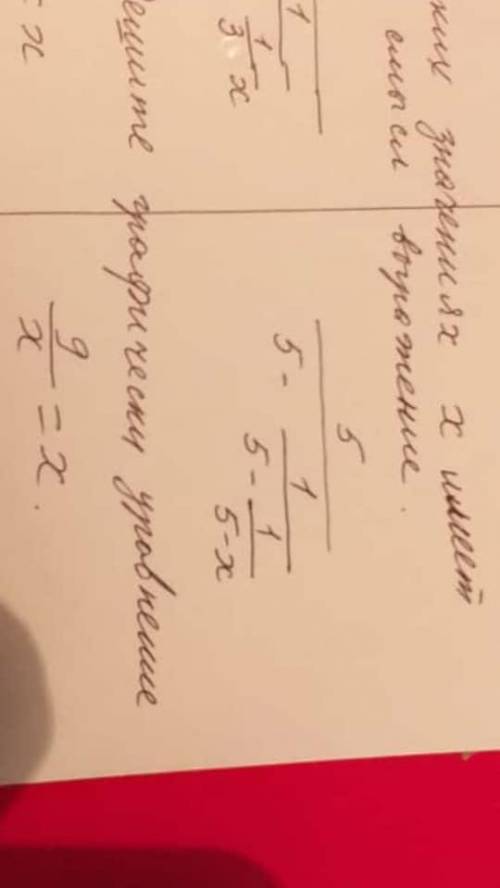 значениях x имеет
смысл выражение.
1
1
3 - x
5
5 - 1
5 - 1
5 - x
графически уравнение
= x
9/x = x.